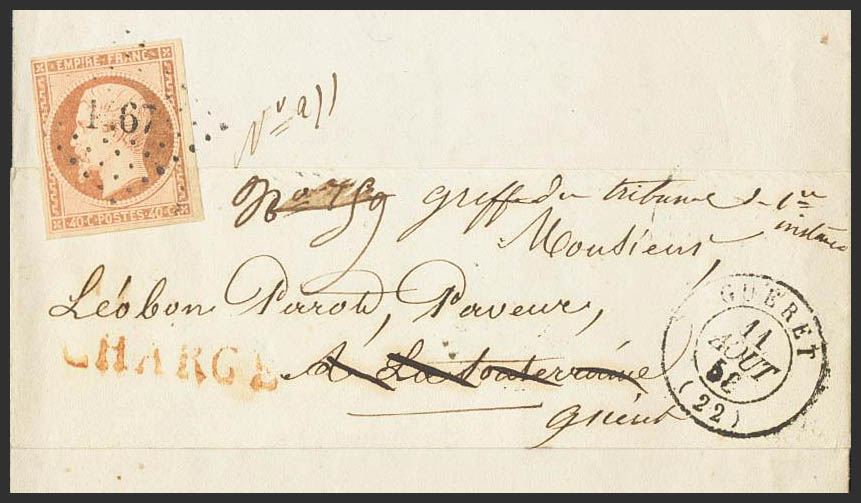 EMPIRE FRANC
67
40·C·POSTES·40·C
No 211
No 759 greffe du tribunal de 1re
instance
Monsieur,
Léobon Parot, Paveur,
CHARGÉ
A La Souterraine
guéret
GUERET
11
AOUT
58
(22)